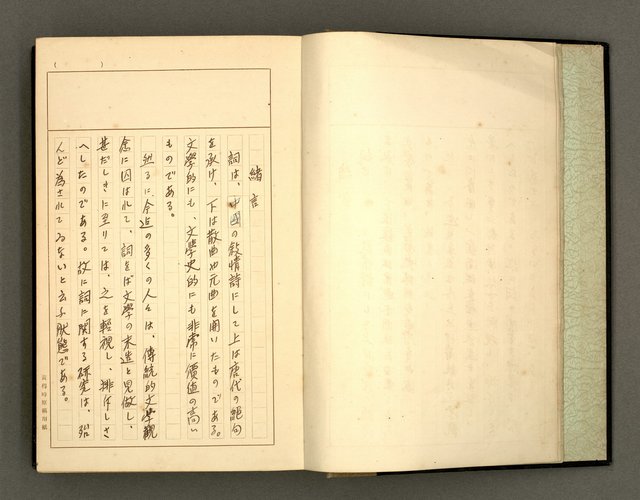 緒言
詞は、中國の敍情詩にして上は唐代の絕句
を承け、下は散曲や元曲を開いたものである。
文學的にも、文學史的にも非常に價値の高い
ものである。
然るに今迄の多くの人々は、傳統的文學觀
念に囚はれて、詞をば文學の末造と見做し、
甚だしきに至りては、之を輕視し、排斥しさ
へしたのである。故に詞に関する研究は、殆
んど為されてゐないと云ふ狀態である。
黃得時原稿用紙